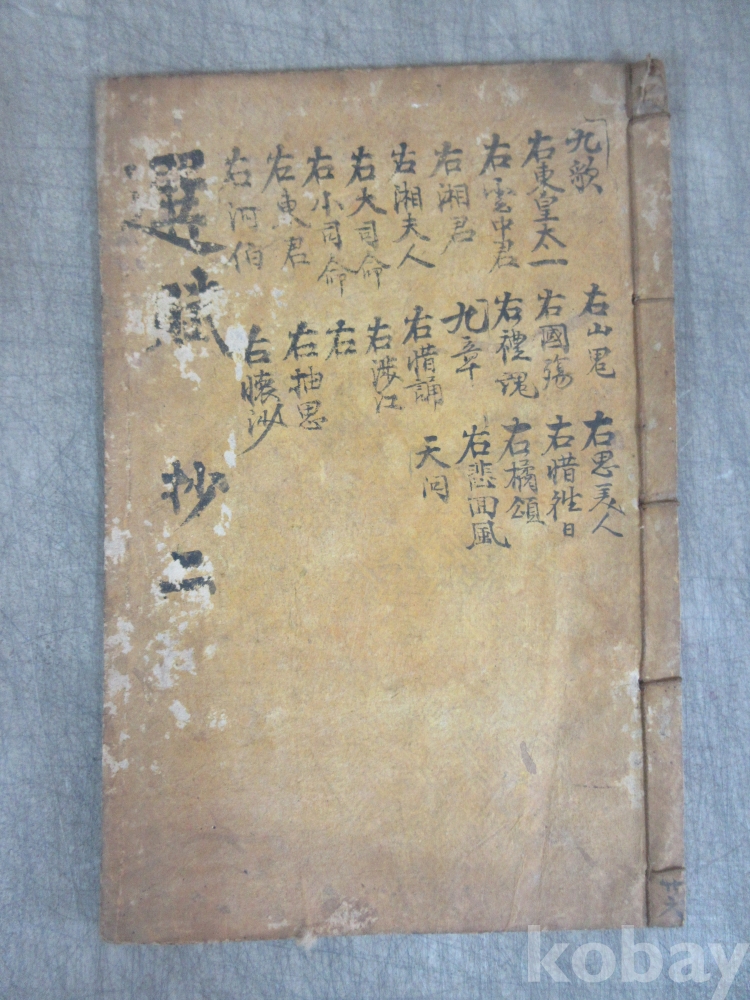 九歌
右東皇太一
右雲中君
右湘君
右湘夫人
右大司命
右小司命
右東君
右河伯
右山鬼
右國殤
右禮魂
九章
右惜誦
右涉江
右
右抽思
右懐沙
右思美人
右惜徃日
右橘頌
右悲囬風
天问
選賦 抄二
kobay